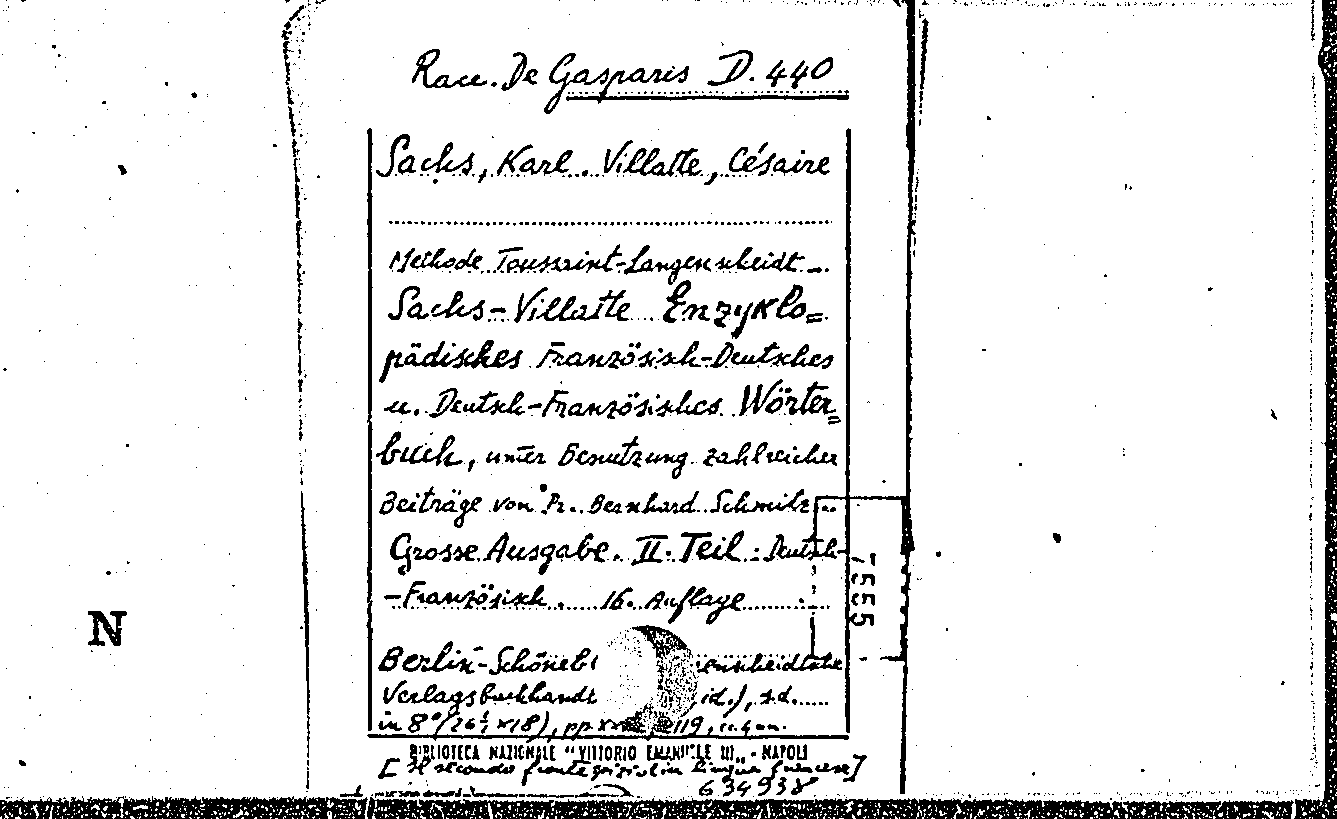 Racc. De Gasparis D. 440
Sachs, Karl. Villatte, Césaire
Methode Toussaint-Langenscheidt -..
Sachs-Villatte Enzyklo=
pädisches Französisch-Deutsches
u. Deutsch-Französisches Wörter=
buch, unter Benutzung zahlreicher
Beiträge von Pr. Bernhard Schmitz...
Grosse Ausgabe. II. Teil: Deutsch-
-Französisch. 16. Auflage
7555
N
Berlin-Schöneb enscheidtsche
Verlagsbuchhandl id.), s.d.
in 8° (26½ x 18), pp 2119,
BIBLIOTECA NAZIONALE "VITTORIO EMANUELE III" - NAPOLI
[Il secondo frontespizio in lingua francese]
634938